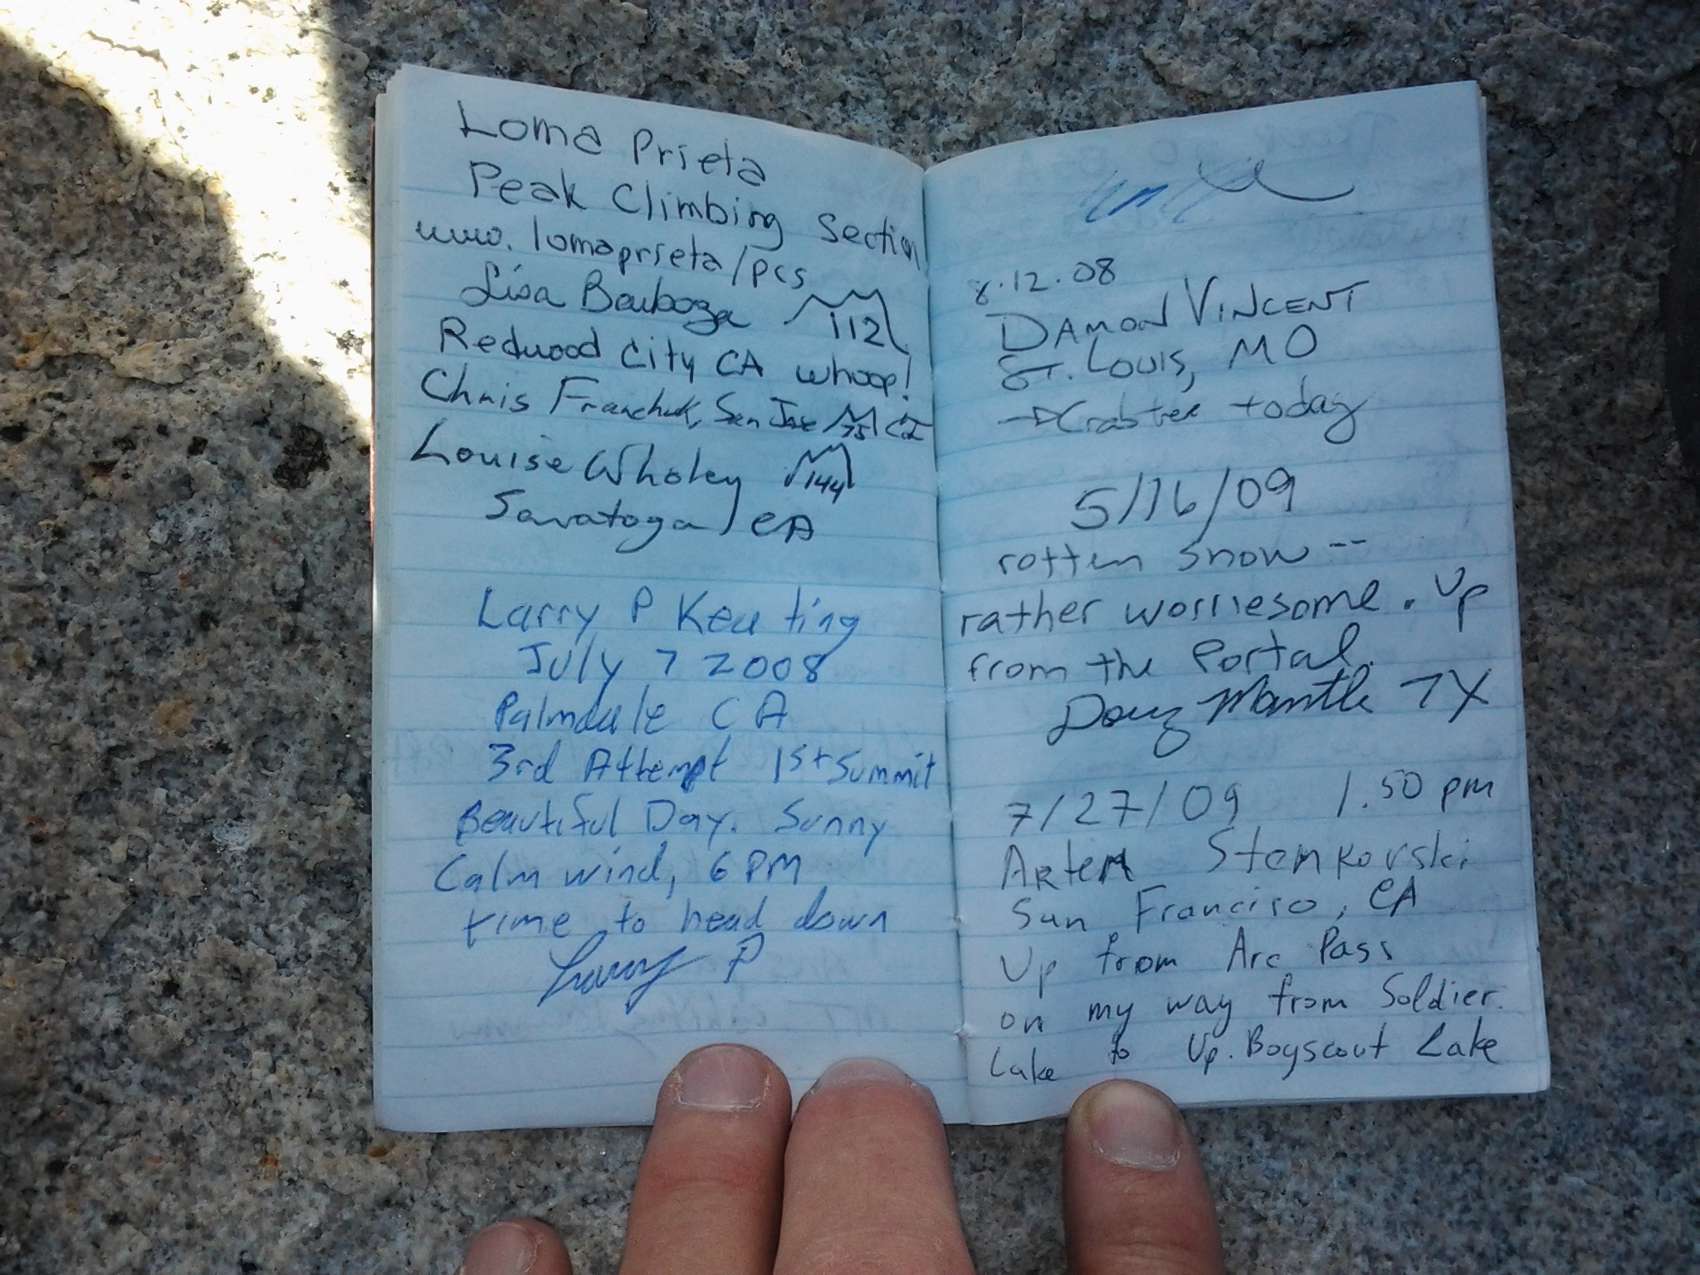 Loma Prieta
Peak Climbing Section
www.lomaprieta/pcs
Lisa Barboza 112
Redwood City CA whoop!
Chris Franchuk, San Jose 75
Louise Wholey 144
Saratoga, CA
Larry P Keating
July 7 2008
Palmdale CA
3rd Attempt 1st Summit
Beautiful Day. Sunny
Calm wind, 6 PM
time to head down
Larry P
8.12.08
DAMON VINCENT
ST. LOUIS, MO
→ Crabtree today
5/16/09
rotten snow --
rather worriesome. Up
from the Portal.
Doug Mantle TX
7/27/09 1.50 pm
Artem Stemkovski
San Francisco, CA
Up from Arc Pass
on my way from Soldier
Lake to Up. Boyscout Lake